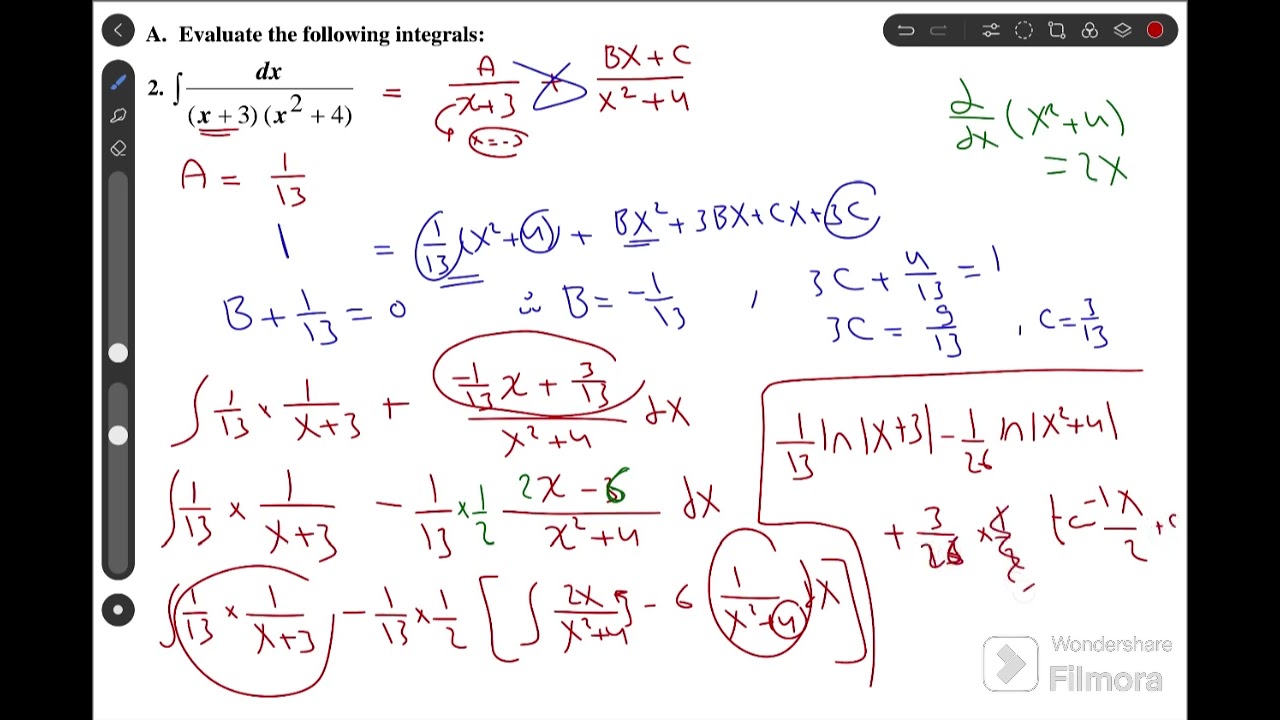 A. Evaluate the following integrals:
2. ∫ dx / (x + 3)(x² + 4) = A / x+3 + BX + C / x² + 4
x = -3
d/dx (x² + 4)
= 2x
A = 1/13
1 = 1/13 (x² + 4) + BX² + 3BX + CX + 3C
B + 1/13 = 0 ∴ B = -1/13 , 3C + 4/13 = 1
3C = 9/13 , C = 3/13
∫ 1/13 × 1/x+3 + -1/13 x + 3/13 / x² + 4 dx
∫ 1/13 × 1/x+3 - 1/13 × 1/2 2x - 6 / x² + 4 dx
∫ 1/13 × 1/x+3 - 1/13 × 1/2 [ ∫ 2x / x² + 4 - 6 1 / x² + 4 dx ]
1/13 ln |x+3| - 1/26 ln |x² + 4|
+ 3/26 t⁻¹ x/2 + c
Wondershare
Filmora